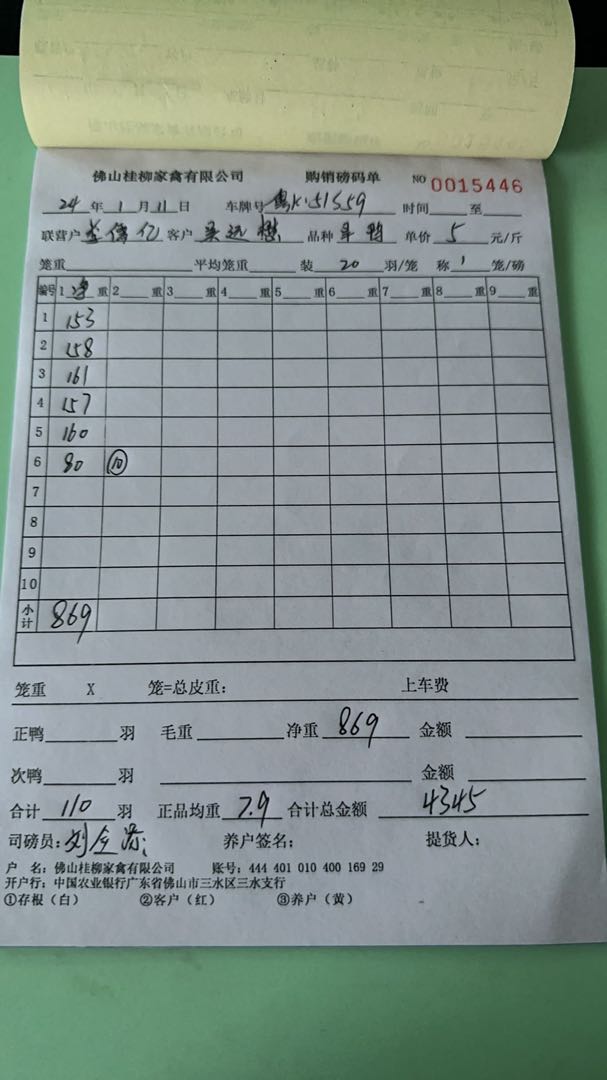 佛山桂柳家禽有限公司 购销磅码单 NO 0015446
24 年 1 月 11 日 车牌号 粤K·51S59 时间 至
联营户 伟亿 客户 远 品种 鸭 单价 5 元/斤
笼重 平均笼重 装 20 羽/笼 称 1 笼/磅
编号 1 净 重 2 重 3 重 4 重 5 重 6 重 7 重 8 重 9 重
1 153
2 158
3 161
4 157
5 160
6 80 ⑩
7
8
9
10
小计 869
笼重 X 笼=总皮重: 上车费
正鸭 羽 毛重 净重 869 金额
次鸭 羽 金额
合计 110 羽 正品均重 7.9 合计总金额 4345
司磅员: 刘 养户签名; 提货人;
户 名: 佛山桂柳家禽有限公司 账号: 444 401 010 400 169 29
开户行: 中国农业银行广东省佛山市三水区三水支行
①存根（白） ②客户（红） ③养户（黄）